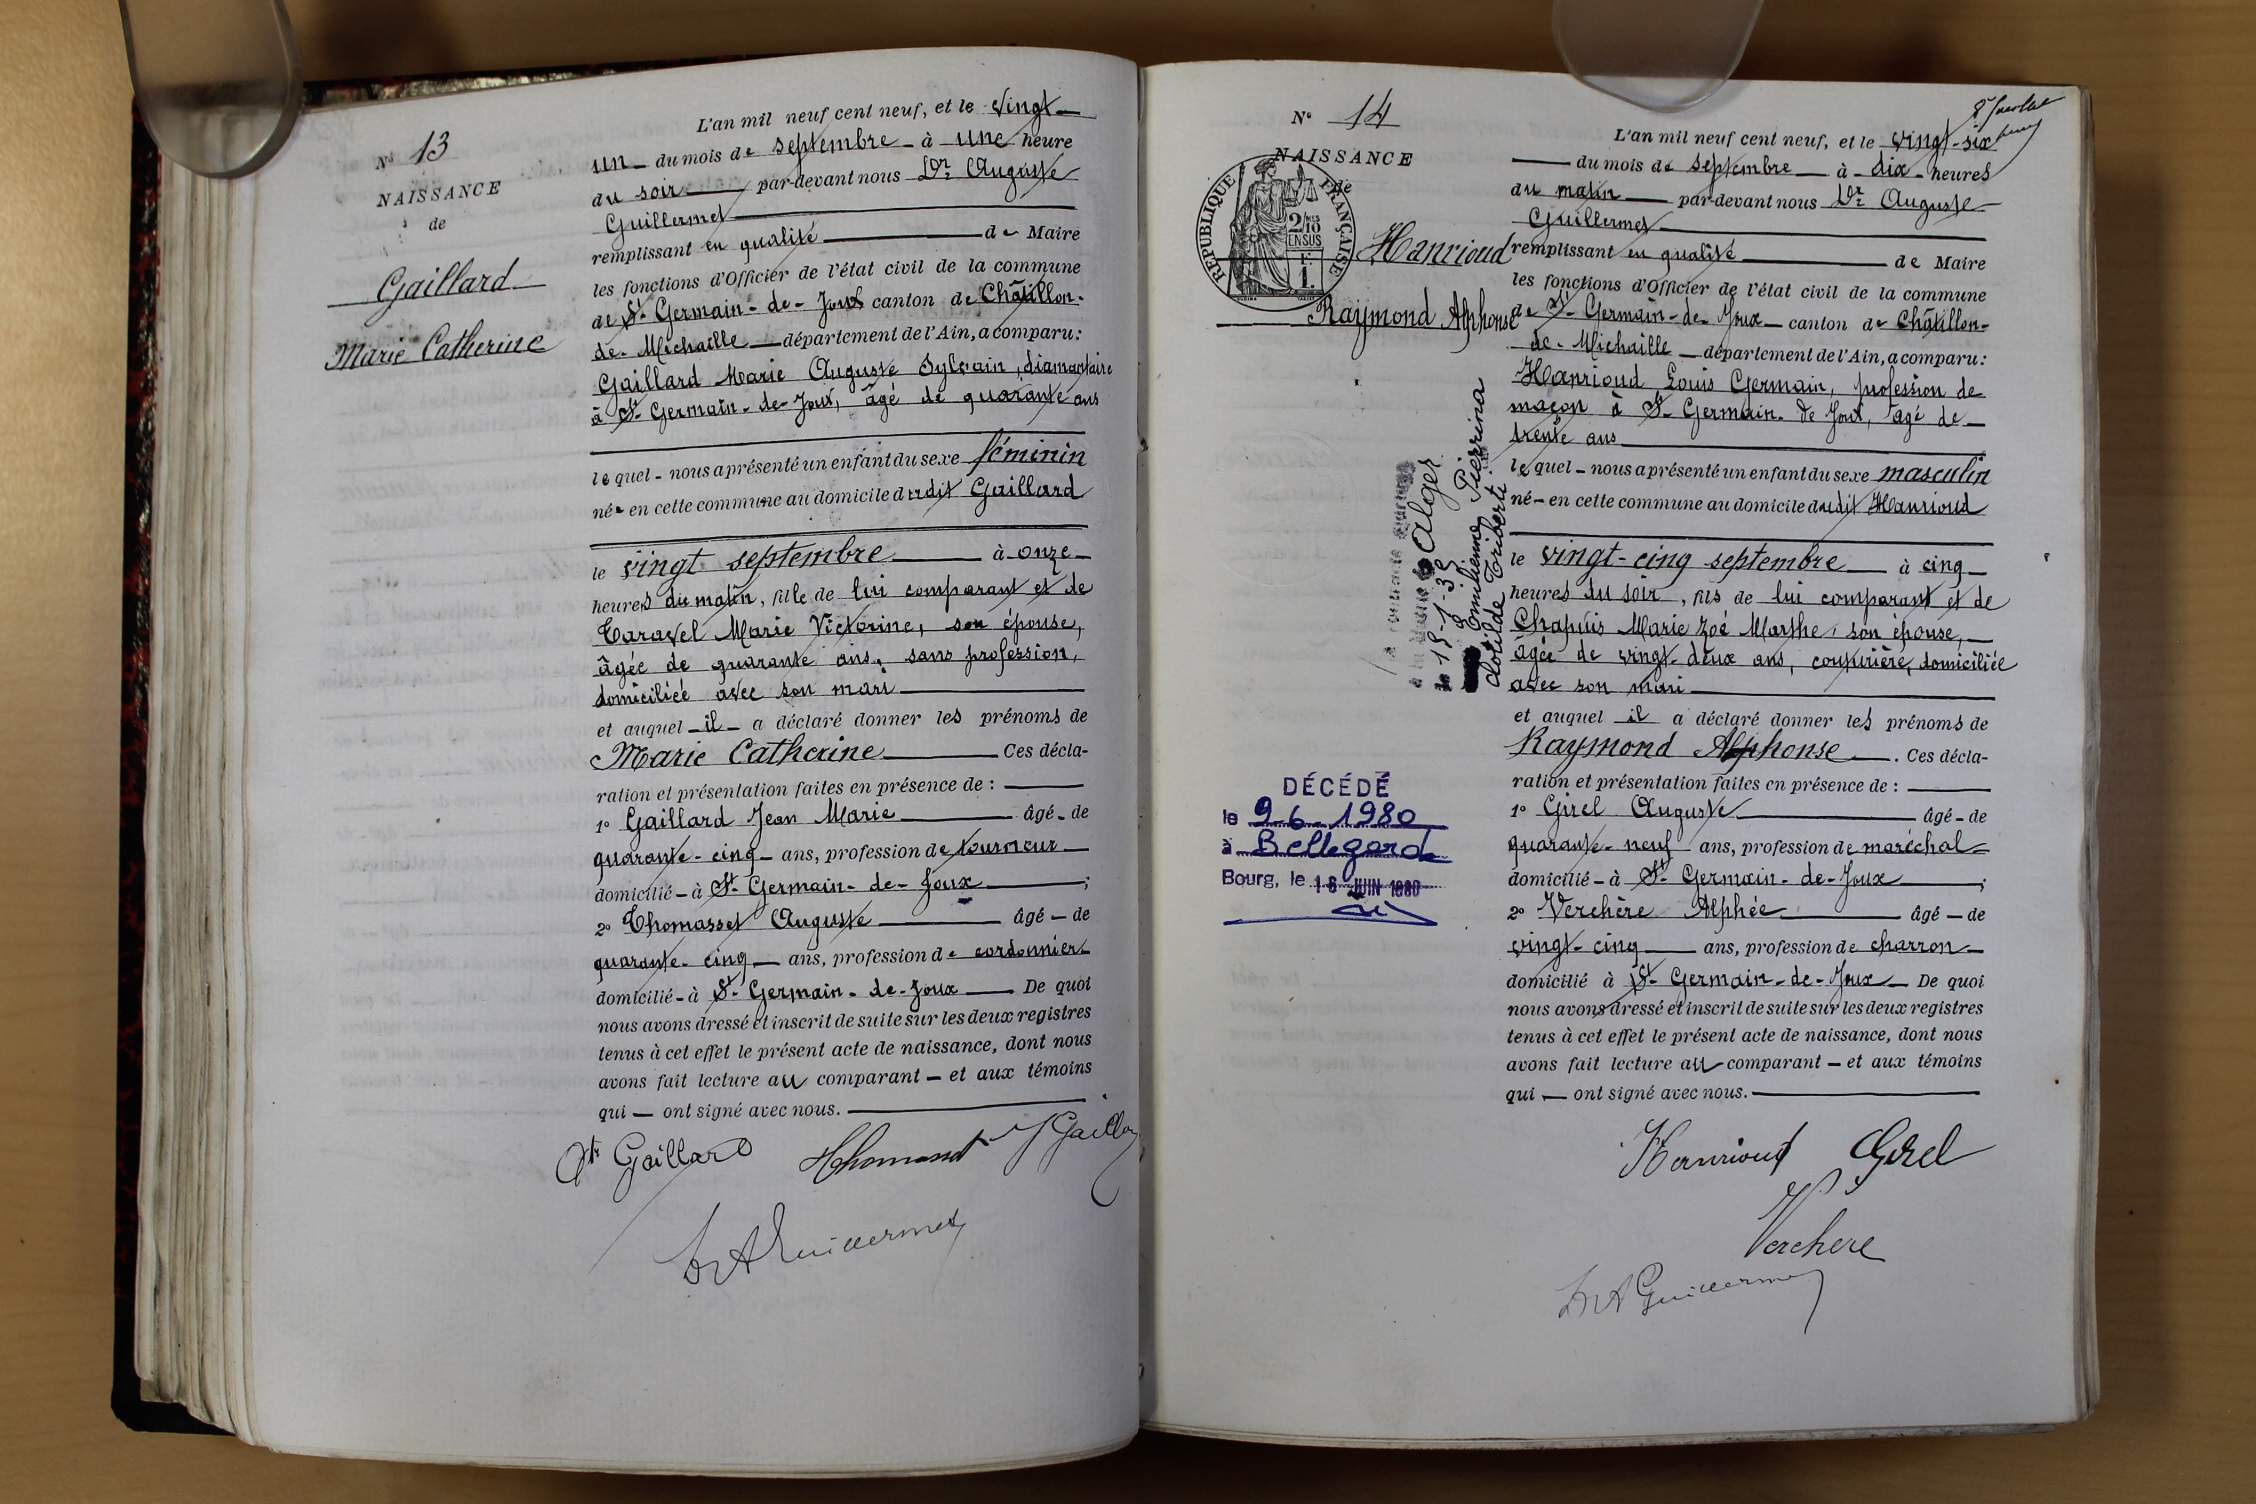 N° 13
NAISSANCE
de
Gaillard
Marie Catherine
L'an mil neuf cent neuf, et le vingt
un du mois de septembre à une heure
du soir par-devant nous Dr Auguste
Guillermet
remplissant en qualité de Maire
les fonctions d'Officier de l'état civil de la commune
de St-Germain-de-Joux canton de Châtillon-
de-Michaille département de l'Ain, a comparu:
Gaillard Marie Auguste Sylvain, diamantaire
à St-Germain-de-Joux, âgé de quarante ans
lequel nous a présenté un enfant du sexe féminin
né en cette commune au domicile dudit Gaillard
le vingt septembre à onze
heures du matin, fille de lui comparant et de
Taravel Marie Victorine, son épouse,
âgée de quarante ans, sans profession,
domiciliée avec son mari
et auquel il a déclaré donner les prénoms de
Marie Catherine Ces décla-
ration et présentation faites en présence de :
1° Gaillard Jean Marie âgé de
quarante-cinq ans, profession de tourneur
domicilié à St-Germain-de-Joux ;
2° Thomasset Auguste âgé de
quarante-cinq ans, profession de cordonnier
domicilié à St-Germain-de-Joux De quoi
nous avons dressé et inscrit de suite sur les deux registres
tenus à cet effet le présent acte de naissance, dont nous
avons fait lecture au comparant et aux témoins
qui ont signé avec nous.
Ate Gaillard Thomasset J Gaillard
Dr A Guillermet
N° 14
NAISSANCE
de
RÉPUBLIQUE FRANÇAISE
2/10
EN SUS
Hanrioud
Raymond Alphonse
L'an mil neuf cent neuf, et le vingt-six
du mois de septembre à dix heures
du matin par-devant nous Dr Auguste
Guillermet
remplissant en qualité de Maire
les fonctions d'Officier de l'état civil de la commune
de St-Germain-de-Joux canton de Châtillon-
de-Michaille département de l'Ain, a comparu:
Hanrioud Louis Germain, profession de
maçon à St-Germain-de Joux, âgé de
trente ans
lequel nous a présenté un enfant du sexe masculin
né en cette commune au domicile dudit Hanrioud
le vingt-cinq septembre à cinq
heures du soir, fils de lui comparant et de
Chapuis Marie Zoé Marthe, son épouse,
âgée de vingt-deux ans, couturière, domiciliée
avec son mari
et auquel il a déclaré donner les prénoms de
Raymond Alphonse . Ces décla-
ration et présentation faites en présence de :
1° Girel Auguste âgé de
quarante-neuf ans, profession de maréchal
domicilié à St-Germain-de-Joux ;
2° Verchère Alphée âgé de
vingt-cinq ans, profession de charron
domicilié à St-Germain-de-Joux De quoi
nous avons dressé et inscrit de suite sur les deux registres
tenus à cet effet le présent acte de naissance, dont nous
avons fait lecture au comparant et aux témoins
qui ont signé avec nous.
Hanrioud Girel
Verchere
Dr A Guillermet
Alger
Emilienne Pierrina
Clotilde Triberti
DÉCÉDÉ
le 9-6-1980
à Bellegarde
Bourg, le 16 JUIN 1980